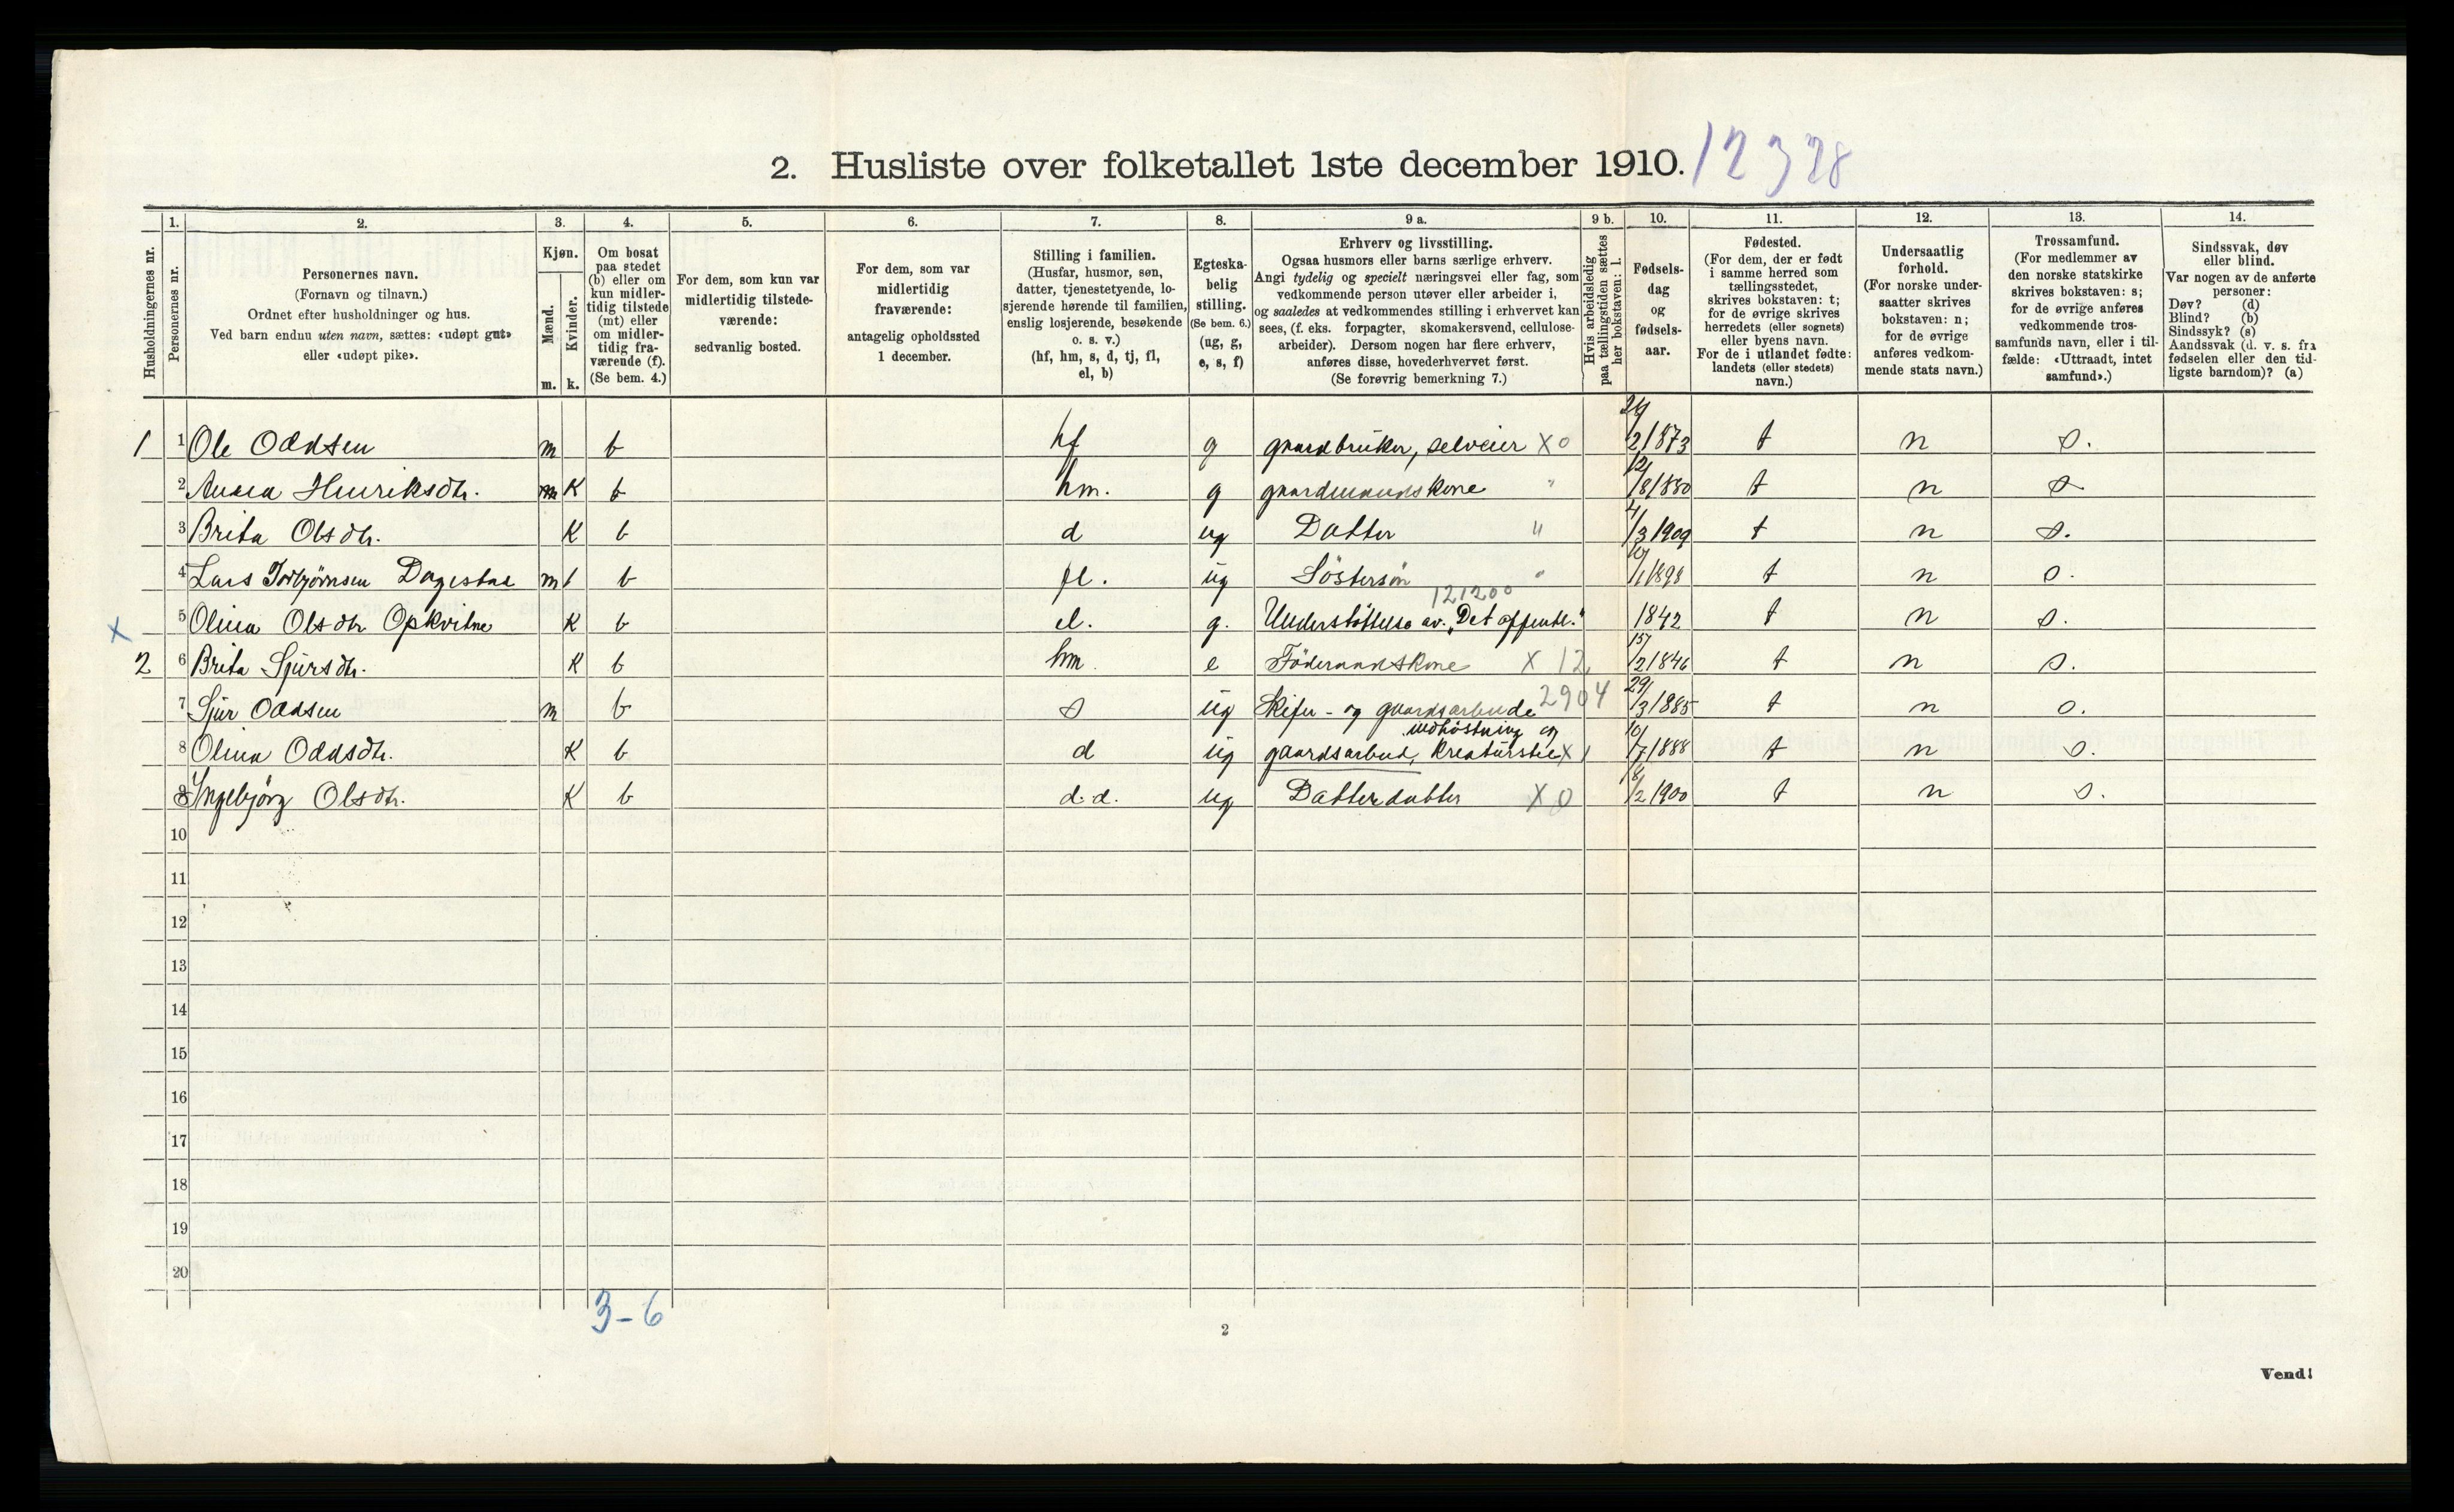 2. Husliste over folketallet 1ste december 1910. 12328
1. 2. 3. 4. 5. 6. 7. 8. 9 a. 9 b. 10. 11. 12. 13. 14.
Husholdningernes nr.
Personernes nr.
Personernes navn.
(Fornavn og tilnavn.)
Ordnet efter husholdninger og hus.
Ved barn endnu uten navn, sættes: «udøpt gut»
eller «udøpt pike».
Kjøn.
Mænd.
Kvinder.
m. k.
Om bosat
paa stedet
(b) eller om
kun midler-
tidig tilstede
(mt) eller
om midler-
tidig fra-
værende (f).
(Se bem. 4.)
For dem, som kun var
midlertidig tilstede-
værende:
sedvanlig bosted.
For dem, som var
midlertidig
fraværende:
antagelig opholdssted
1 december.
Stilling i familien.
(Husfar, husmor, søn,
datter, tjenestetyende, lo-
sjerende hørende til familien,
enslig losjerende, besøkende
o. s. v.)
(hf, hm, s, d, tj, fl,
el, b)
Egteska-
belig
stilling.
(Se bem. 6.)
(ug, g,
e, s, f)
Erhverv og livsstilling.
Ogsaa husmors eller barns særlige erhverv.
Angi tydelig og specielt næringsvei eller fag, som
vedkommende person utøver eller arbeider i,
og saaledes at vedkommendes stilling i erhvervet kan
sees, (f. eks. forpagter, skomakersvend, cellulose-
arbeider). Dersom nogen har flere erhverv,
anføres disse, hovederhvervet først.
(Se forøvrig bemerkning 7.)
Hvis arbeidsledig
paa tællingstiden sættes
her bokstaven: l.
Fødsels-
dag
og
fødsels-
aar.
Fødested.
(For dem, der er født
i samme herred som
tællingsstedet,
skrives bokstaven: t;
for de øvrige skrives
herredets (eller sognets)
eller byens navn.
For de i utlandet fødte:
landets (eller stedets)
navn.)
Undersaatlig
forhold.
(For norske under-
saatter skrives
bokstaven: n;
for de øvrige
anføres vedkom-
mende stats navn.)
Trossamfund.
(For medlemmer av
den norske statskirke
skrives bokstaven: s;
for de øvrige anføres
vedkommende tros-
samfunds navn, eller i til-
fælde: «Uttraadt, intet
samfund».)
Sindssvak, døv
eller blind.
Var nogen av de anførte
personer:
Døv? (d)
Blind? (b)
Sindssyk? (s)
Aandssvak (d. v. s. fra
fødselen eller den tid-
ligste barndom)? (a)
1 1 Ole Oddsen m b hf g gaardbruker, selveier X 0 24/2 1873 t n s.
2 Anna Henriksdtr. K b hm. g gaardmandskone " 12/8 1880 t n s
3 Brita Olsdtr. K b d ug Datter " 4/3 1909 t n s.
4 Lars Torbjørnsen m b fl. ug Søstersøn " 10/1 1898 t n s.
121200
X 5 Olina Olsdtr Opkvitne K b el. g. Understøttelse av „Det offentl." 1842 t n s.
2 6 Brita Sjursdtr. K b hm. e Födemandskone X 12 15/2 1846 t n s.
7 Sjur Oddsen m b s ug Skifer- og gaardsarbeide 2904 29/3 1885 t n s.
indhöstning og
8 Olina Oddsdtr. K b d ug gaardsarbeid, kreaturstel X 1 10/7 1888 t n s.
9 Ingebjörg Olsdtr. K b d.d. ug Datterdatter X 0 8/2 1900 t n s.
10
11
12
13
14
15
16
17
18
19
20
3-6
2
Vend!